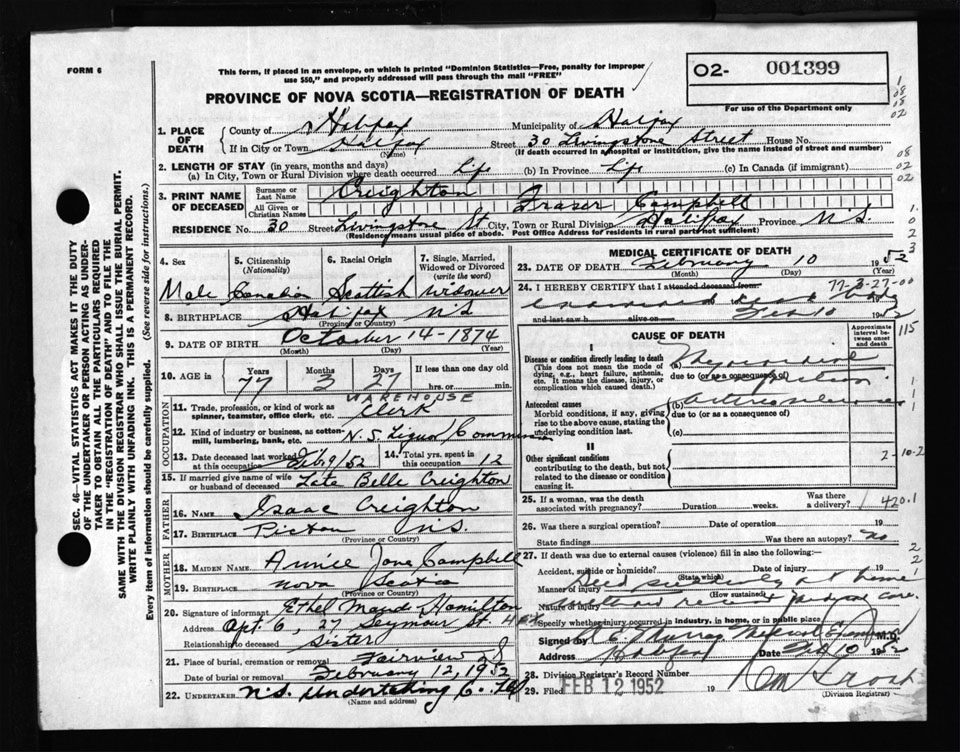 FORM 6
This form, if placed in an envelope, on which is printed "Dominion Statistics—Free, penalty for improper
use $50," and properly addressed will pass through the mail "FREE"
O2- 001399
For use of the Department only
PROVINCE OF NOVA SCOTIA—REGISTRATION OF DEATH
1. PLACE OF DEATH
County of Halifax Municipality of Halifax
If in City or Town Halifax (Name) Street 30 Livingstone Street House No.
(If death occurred in a hospital or institution, give name instead of street and number)
2. LENGTH OF STAY (in years, months and days)
(a) In City, Town or Rural Division where death occurred Life (b) In Province Life (c) In Canada (if immigrant)
3. PRINT NAME OF DECEASED
Surname or Last Name Creighton
All Given or Christian Names Frazer Campbell
RESIDENCE No. 30 Street Livingstone St. City, Town or Rural Division Halifax Province N.S.
(Residence means usual place of abode. Post Office Address for residents in rural parts not sufficient)
4. Sex
5. Citizenship (Nationality)
6. Racial Origin
7. Single, Married, Widowed or Divorced (write the word)
Male Canadian Scottish Widower
8. BIRTHPLACE Halifax N.S.
(Province or Country)
9. DATE OF BIRTH October 14-1874
(Month) (Day) (Year)
10. AGE in Years Months Days If less than one day
77 3 27 hrs. or min.
OCCUPATION
11. Trade, profession, or kind of work as spinner, teamster, office clerk, etc. WAREHOUSE Clerk
12. Kind of industry or business, as cotton-mill, lumbering, bank, etc. N.S. Liquor Commission
13. Date deceased last worked at this occupation Feb 9/52 14. Total yrs. spent in this occupation 12
15. If married give name of wife or husband of deceased Late Belle Creighton
FATHER
16. NAME Isaac Creighton
17. BIRTHPLACE Pictou N.S.
(Province or Country)
MOTHER
18. MAIDEN NAME Annie Jane Campbell
19. BIRTHPLACE Nova Scotia
(Province or Country)
20. Signature of informant Ethel Maud Hamilton
Address Apt. 6, 27 Seymour St.
Relationship to deceased Sister
21. Place of burial, cremation or removal Fairview
Date of burial or removal February 12, 1952
22. UNDERTAKER N.S. Undertaking Co. Ltd
(Name and address)
MEDICAL CERTIFICATE OF DEATH
23. DATE OF DEATH February 10 1952
(Month) (Day) (Year)
77-3-27-00
24. I HEREBY CERTIFY that I attended deceased from:
body
and last saw h alive on Feb 10 1952
CAUSE OF DEATH
Approximate interval between onset and death
I
Disease or condition directly leading to death
(This does not mean the mode of dying, e.g., heart failure, asthenia, etc. It means the disease, injury, or complication which caused death.)
(a) Myocardial
due to (or as a consequence of)
Antecedent causes
Morbid conditions, if any, giving rise to the above cause, stating the underlying condition last.
(b) Arteriosclerosis
due to (or as a consequence of)
(c)
II
Other significant conditions
contributing to the death, but not related to the disease or condition causing it.
25. If a woman, was the death associated with pregnancy? Duration weeks. Was there a delivery?
420.1
26. Was there a surgical operation? Date of operation 19
State findings Was there an autopsy? no
27. If death was due to external causes (violence) fill in also the following:
Accident, suicide or homicide? (State which) Date of injury 19
Manner of injury Died suddenly at home
(How sustained)
Nature of injury without recent medical care.
Specify whether injury occurred in industry, in home, or in public place
Signed by Murray Medical Examiner M.D.
Address Halifax Date Feb 10 1952
28. Division Registrar's Record Number
29. Filed FEB 12 1952 19
(Division Registrar)
SEC. 46—VITAL STATISTICS ACT MAKES IT THE DUTY
OF THE UNDERTAKER OR PERSON ACTING AS UNDERTAKER
TO OBTAIN ALL THE PARTICULARS REQUIRED
IN THE "REGISTRATION OF DEATH" AND TO FILE THE
SAME WITH THE DIVISION REGISTRAR WHO SHALL ISSUE THE BURIAL PERMIT.
WRITE PLAINLY WITH UNFADING INK. THIS IS A PERMANENT RECORD.
Every item of information should be carefully supplied. (See reverse side for instructions.)